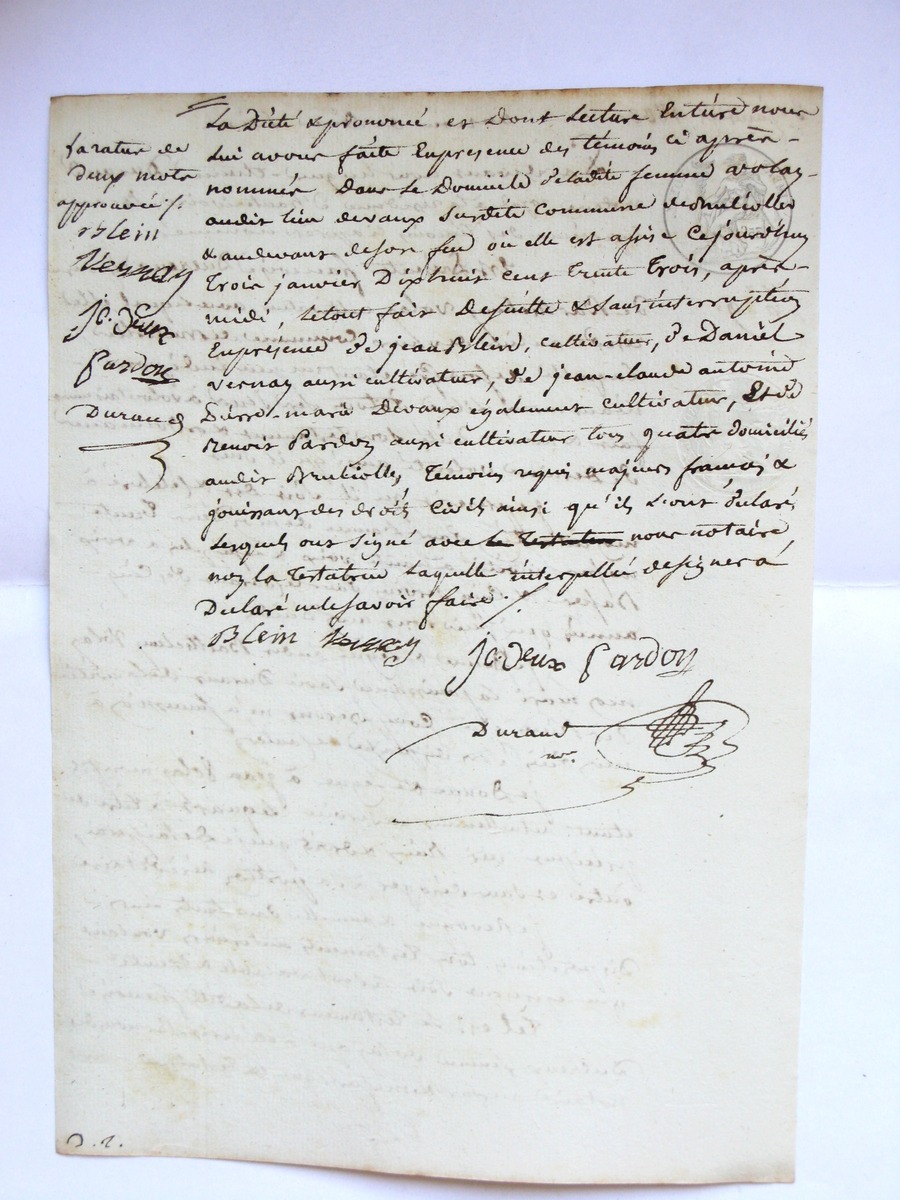 La rature de
deux mots
approuvée ./.
Blein
Vernay
J C. deux
Pardon
Durand
La Dicté & prononcé, et Dont Lecture Entière nous
Lui avons faite En présence des témoins ci après-
nommés Dans Le Domicile de ladite femme volay
audit lieu devaux Susdite Commune de Brulliolles
& au devant de son feu où elle est assise Cejourdhuy
Trois janvier Dixhuit Cent Trente Trois, après-
midi, le tout fait de suitte & sans interruption
En présence de jean Blein, cultivateur, de Daniel
vernay aussi cultivateur, de jean-claude antoine
Pierre-marie Devaux également cultivateur, Et de
Benoit Pardon aussi cultivateur tous quatre domiciliés
audit Brulliolles, Témoins requis majeurs français &
jouissant des droits Civils ainsi qu'ils L'ont déclaré
Lesquels ont signé avec le Testateur nous notaire
non la Testatrice Laquelle interpellée de signer a
Déclaré ne le savoir faire ./.
Blein Vernay
J C. deux Pardon
Durand
nre.
D. 2.